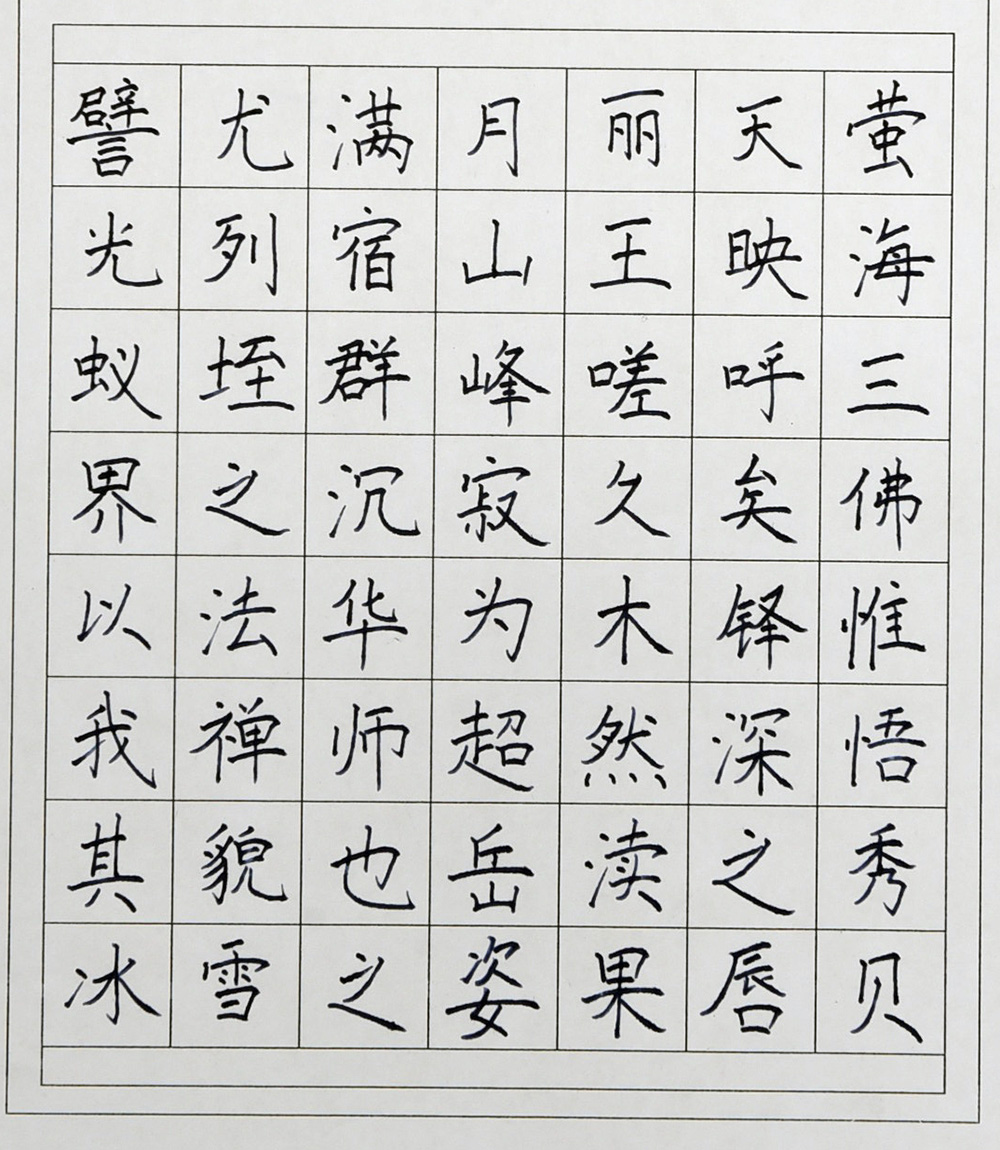 譬尤满月丽天萤
光列宿山王映海
蚁垤群峰嗟呼三
界之沉寂久矣佛
以法华为木铎惟
我禅师超然深悟
其貌也岳渎之秀
冰雪之姿果唇贝